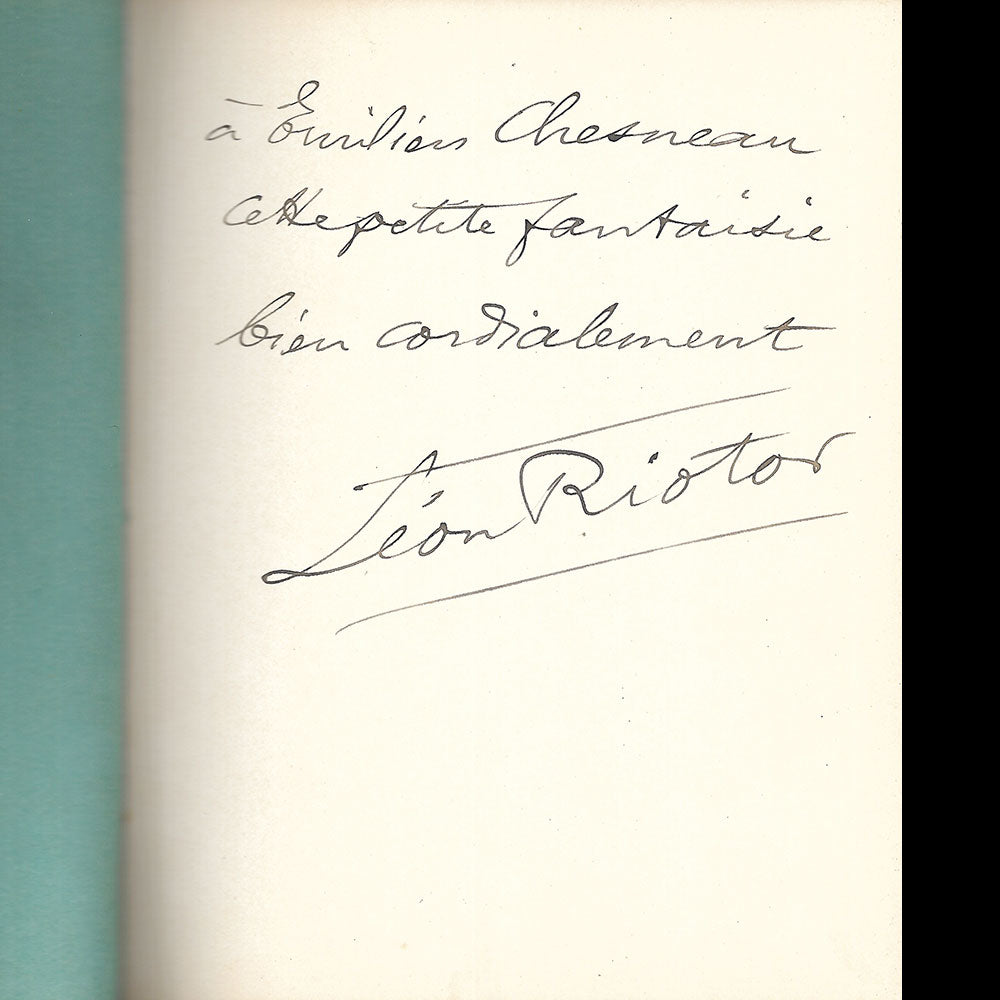 à Emilien Chesneau
cette petite fantaisie
bien cordialement
Léon Riotor